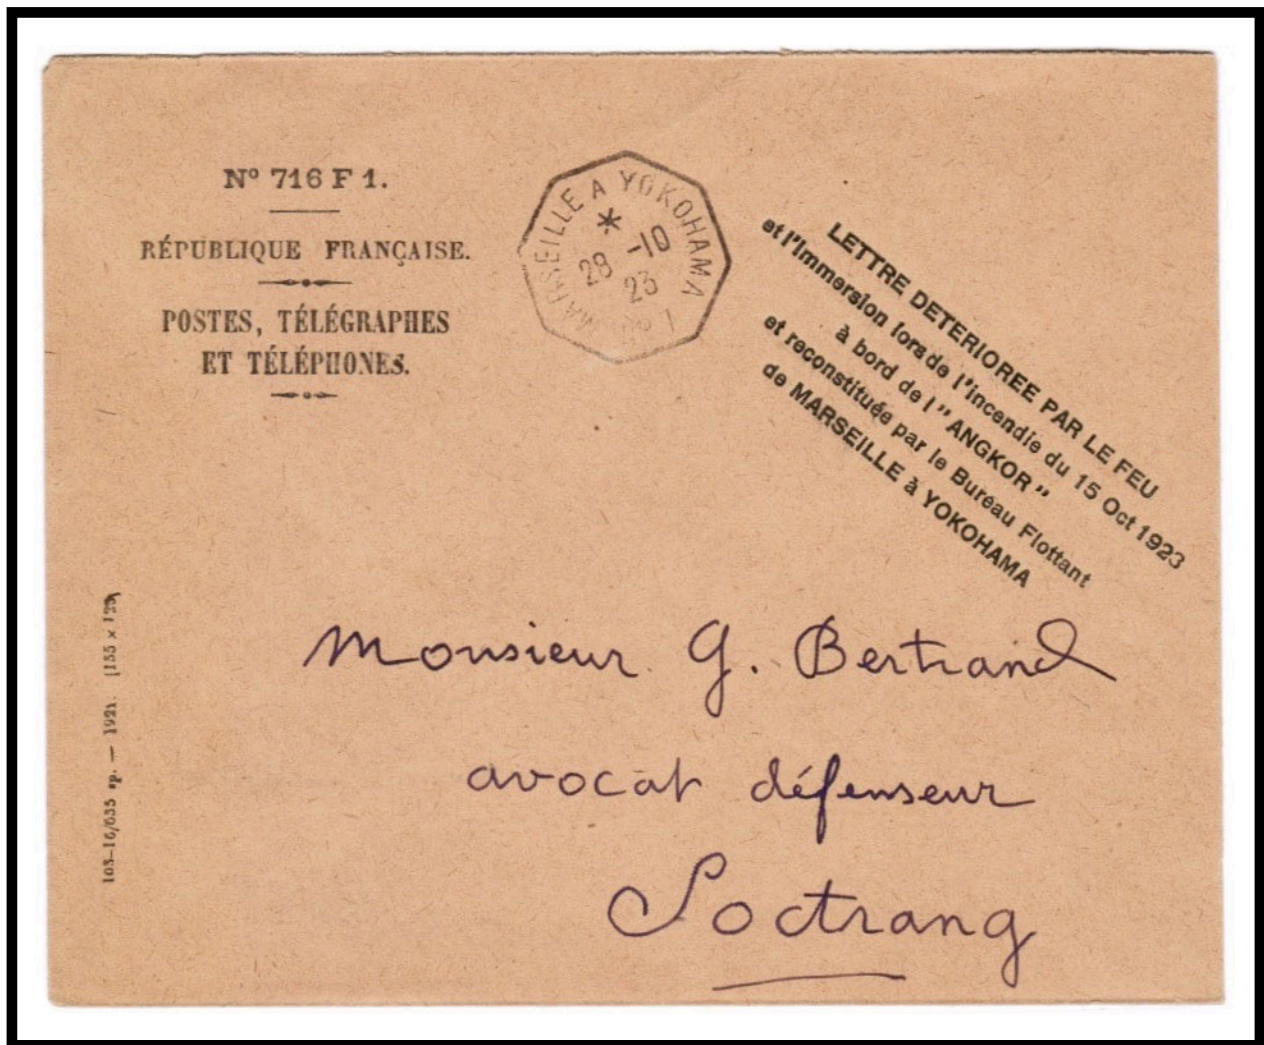 Nº 716 F 1.
RÉPUBLIQUE FRANÇAISE.
POSTES, TÉLÉGRAPHES
ET TÉLÉPHONES.
MARSEILLE A YOKOHAMA
*
28 -10
23
LETTRE DETERIOREE PAR LE FEU
et l'Immersion lors de l'incendie du 15 Oct 1923
à bord de l'"ANGKOR"
et reconstituée par le Bureau Flottant
de MARSEILLE à YOKOHAMA
Monsieur G. Bertrand
avocat défenseur
Soctrang
103-16/635 ep. — 1921. [155 ×